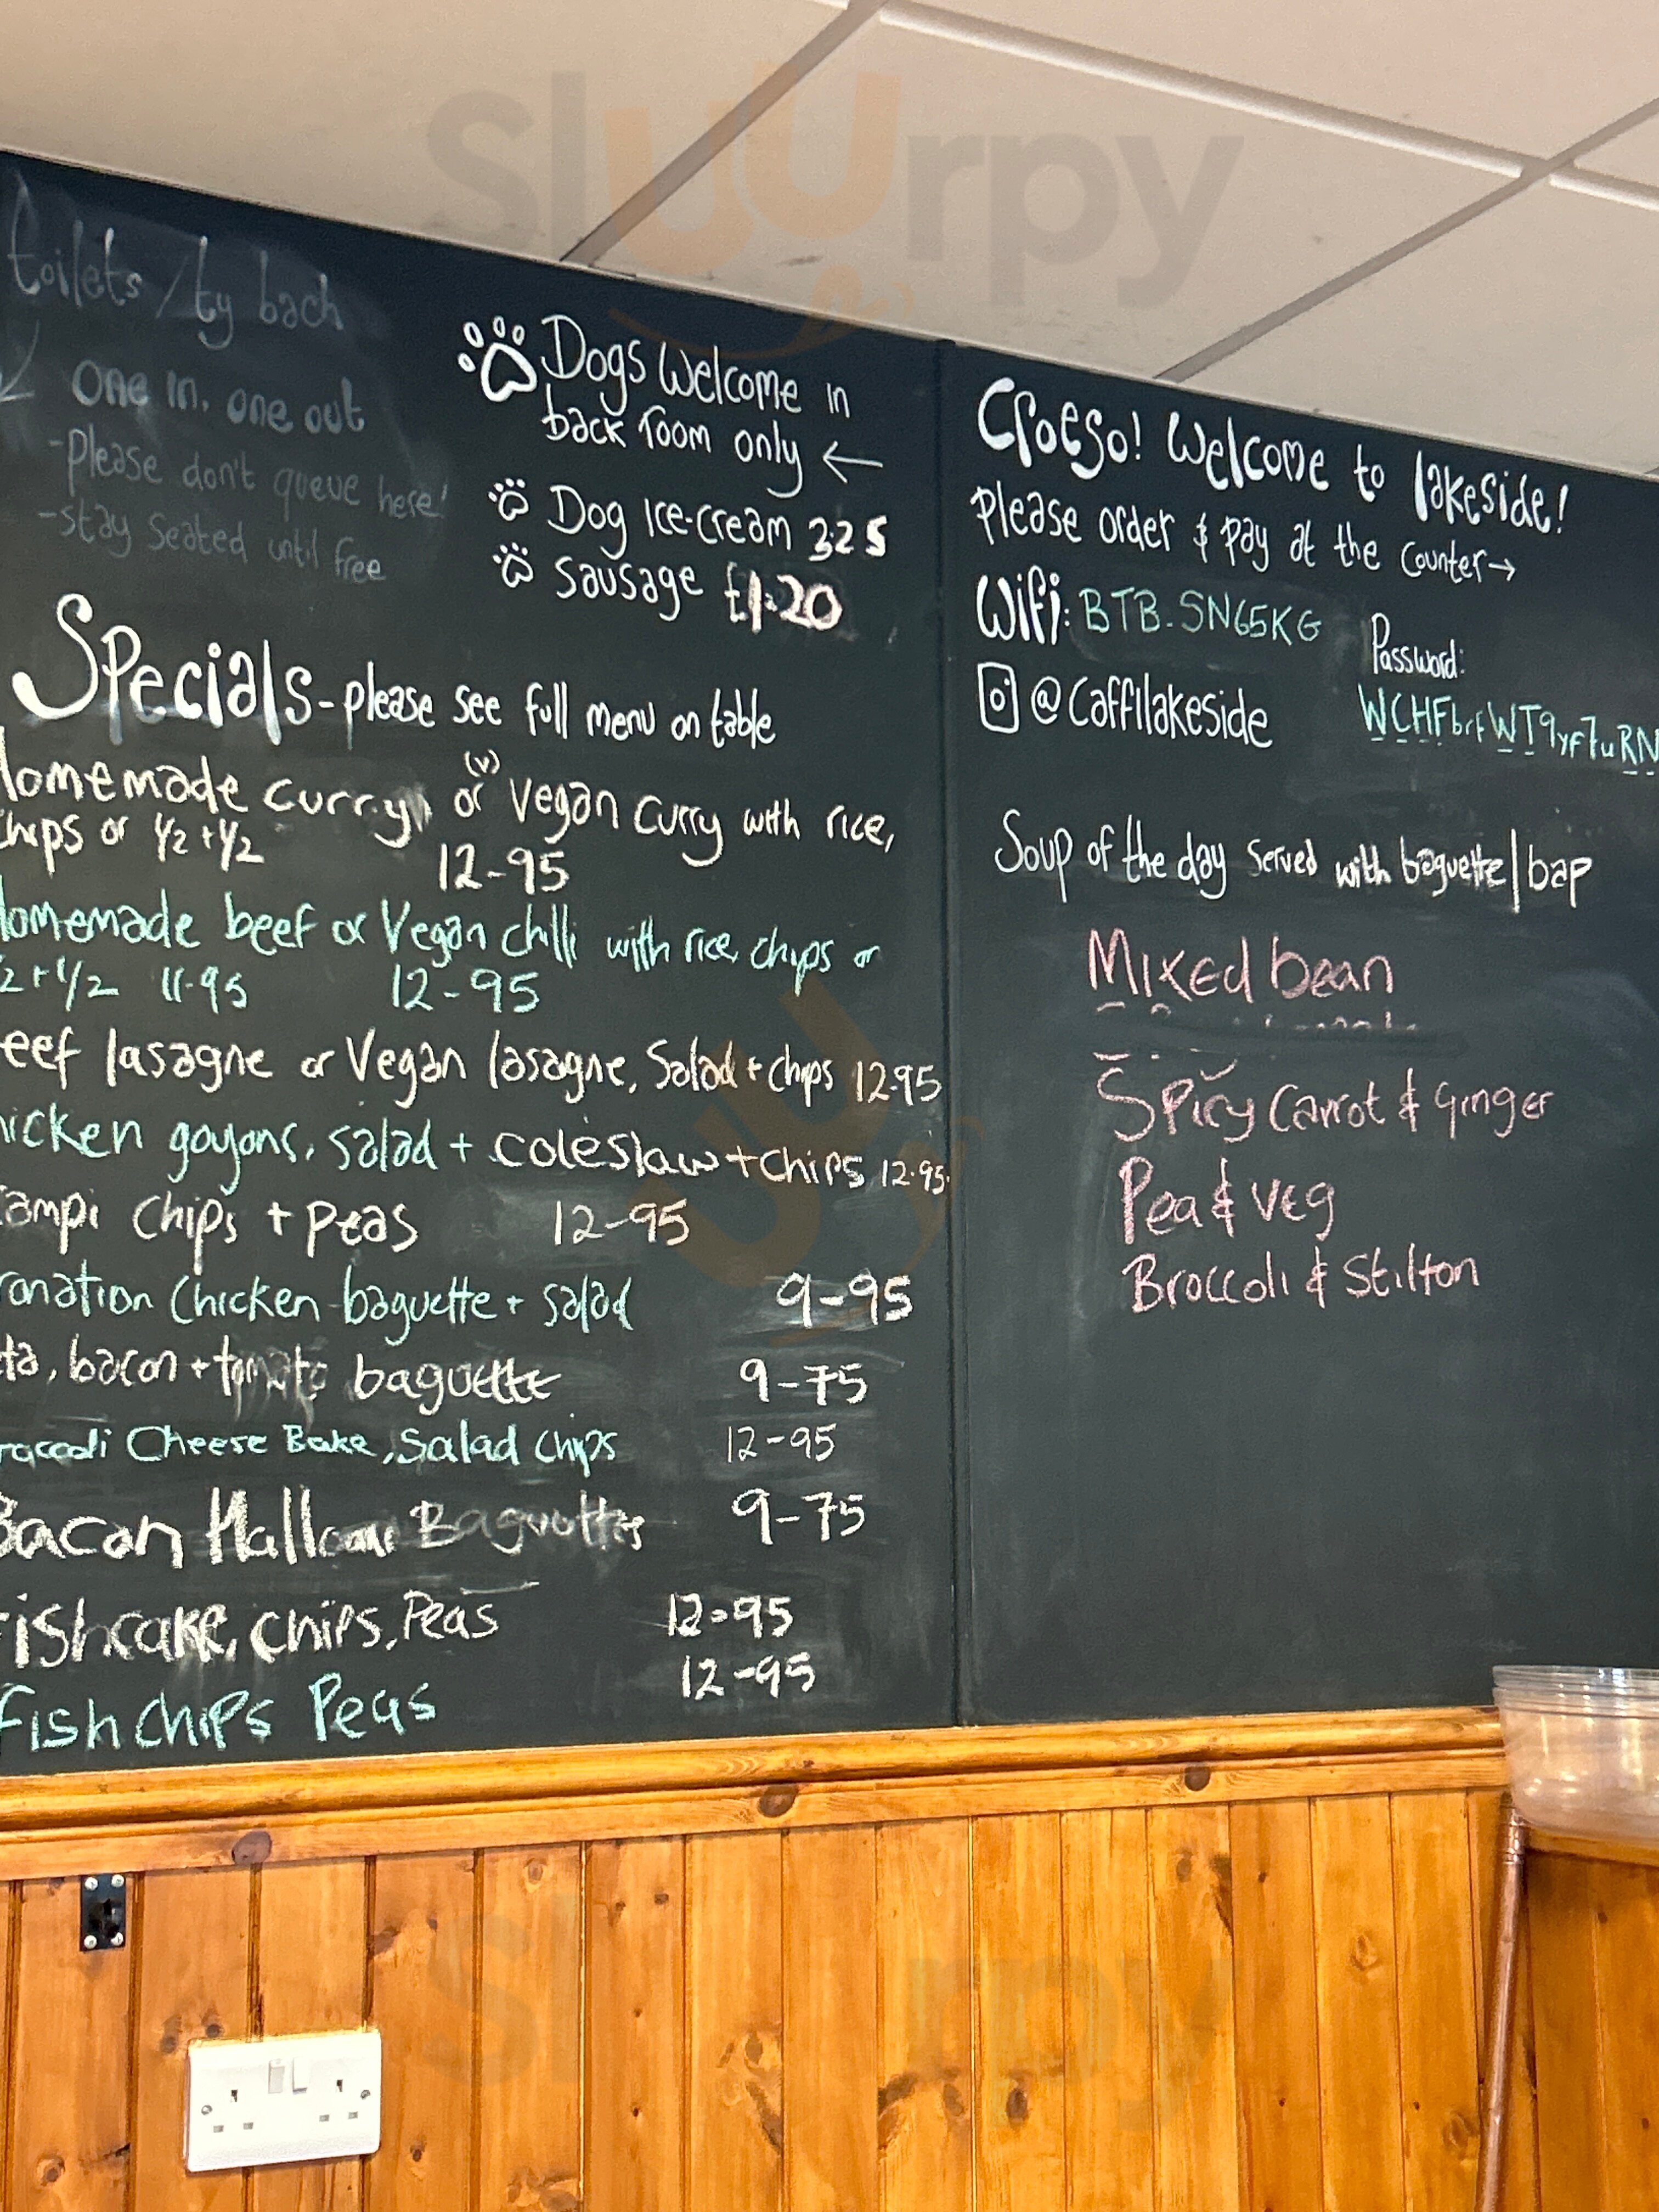 Sluurpy
toilets/ty bach
One in, one out
-Please don't queue here!
-stay seated until free
Dogs Welcome in
back room only ←
Dog Ice-cream 3.25
Sausage £1.20
Specials - please see full menu on table
Homemade curry or (v) Vegan curry with rice,
chips or 1/2 + 1/2 12-95
Homemade beef or Vegan chilli with rice, chips or
1/2 + 1/2 11.95 12-95
eef lasagne or Vegan lasagne, Salad + chips 12.95
hicken goyons, salad + coleslaw + chips 12.95
campi chips + peas 12-95
ronation chicken baguette + salad 9-95
ta, bacon + tomato baguette 9-75
roccoli Cheese Bake, Salad chips 12-95
Bacon Baguettes 9-75
Fishcake, chips, Peas 12-95
Fish chips Peas 12-95
Croeso! Welcome to lakeside!
Please order & pay at the counter →
Wifi: BTB-SN65KG
Password:
@Caffilakeside
Soup of the day served with baguette/bap
Mixed bean
Spicy Carrot & ginger
Pea & veg
Broccoli & Stilton